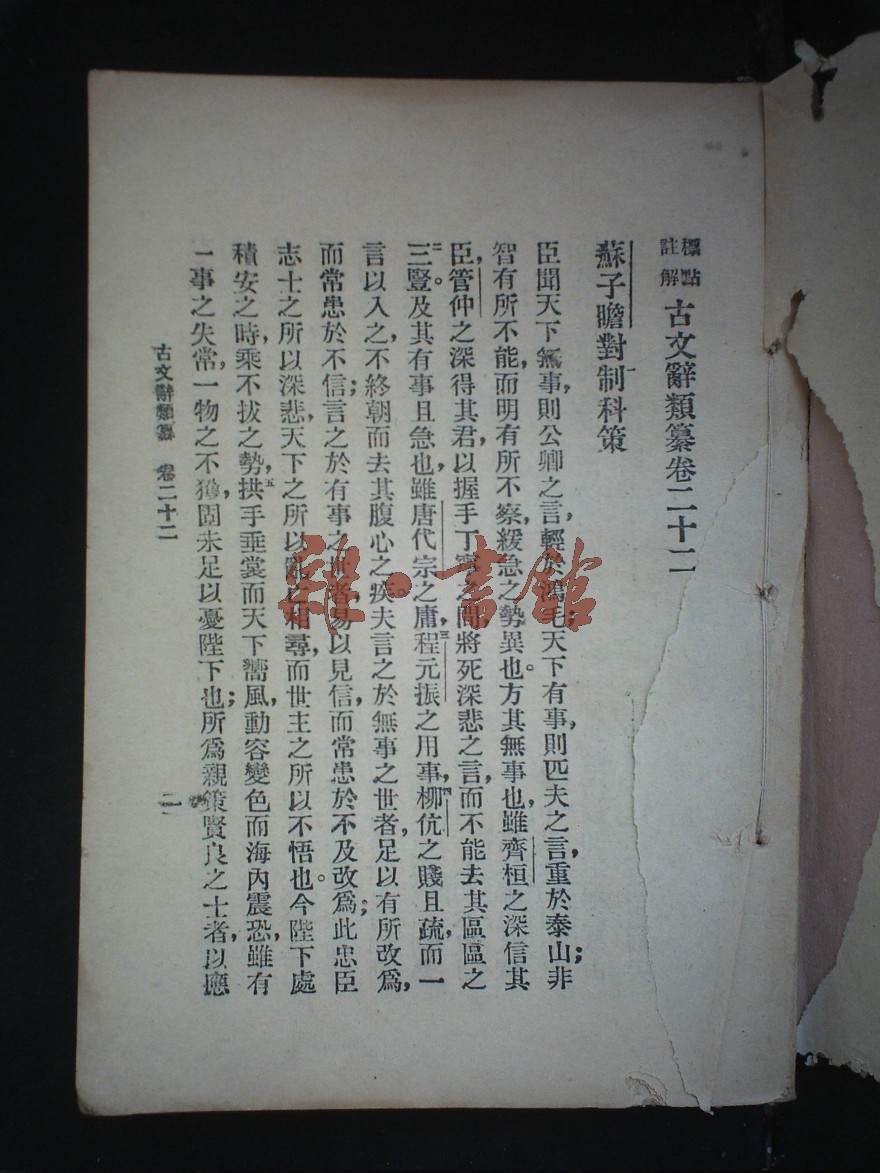 標點
註解
古文辭類纂卷二十二
蘇子瞻對制科策一
臣聞天下無事，則公卿之言，輕於鴻毛；天下有事，則匹夫之言，重於泰山；非
智有所不能，而明有所不察，緩急之勢異也。方其無事也，雖齊桓之深信其
臣，管仲之深得其君，以握手丁寧之間，將死深悲之言，而不能去其區區之
三豎二。及其有事且急也，雖唐代宗之庸，程元振三之用事，柳伉四之賤且疏，而一
言以入之，不終朝而去其腹心之疾。夫言之於無事之世者，足以有所改爲，
而常患於不信；言之於有事之世者，易以見信，而常患於不及改爲；此忠臣
志士之所以深悲，天下之所以亂亡相尋，而世主之所以不悟也。今陛下處
積安之時，乘不拔之勢，拱五手垂裳而天下嚮風，動容變色而海內震恐，雖有
一事之失常，一物之不獲，固未足以憂陛下也；所爲親策賢良之士者，以應
古文辭類纂　卷二十二
一
雜·書館